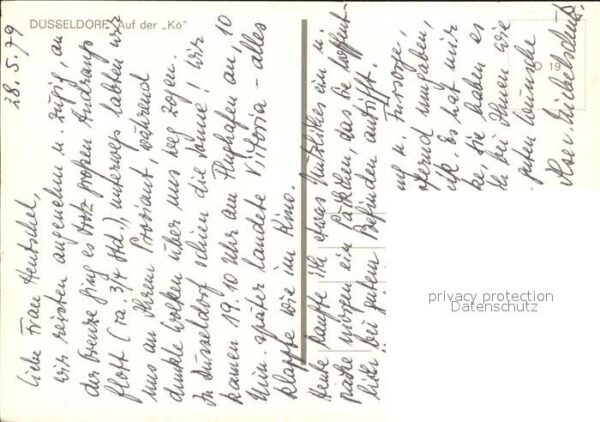 DÜSSELDORF Auf der „Kö"
28.5.79
Liebe Frau Hentschel,
wir reisten angenehm u. zügig, an
der Grenze ging es trotz großen Andrangs
flott (ca. 3/4 Std.), unterwegs labten wir
uns an Ihrem Proviant, während
dunkle Wolken über uns weg zogen.
In Düsseldorf schien die Sonne! Wir
kamen 19.10 Uhr am Flughafen an, 10
Min. später landete Viktoria – alles
klappte wie im Kino.
Heute kaufte ich etwas Nützliches ein u.
packe morgen ein Päckchen, das Sie hoffent-
lich bei gutem Befinden antrifft.
u. Fürsorge,
umgeben,
Es hat mir
Sie haben es
bei Ihnen wie
guten Wünsche
privacy protection
Datenschutz